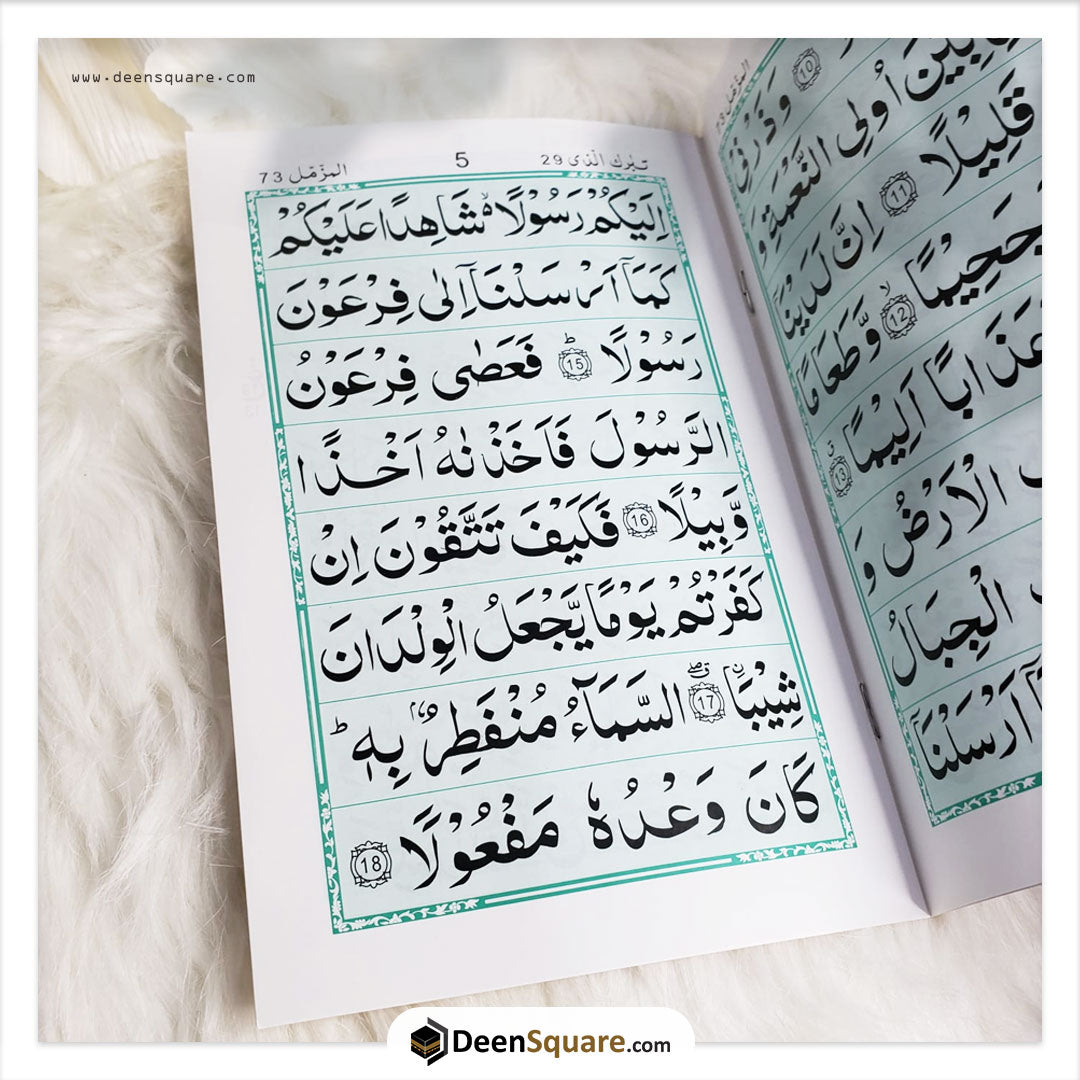 www.deensquare.com
المزّمّل 73
10 وَذَرْنِيْ
اُولِى النَّعْمَةِ وَ
قَلِيْلًا 11 اِنَّ لَدَيْنَا
جَحِيْمًا ۙ 12 وَّطَعَامًا
اَلِيْمًا 13
الْاَرْضُ وَ
الْجِبَالُ
اَرْسَلْنَاۤ
تبٰرك الّذى 29 5 المزّمّل 73
اِلَيْكُمْ رَسُوْلًا ۙ۬ شَاهِدًا عَلَيْكُمْ
كَمَاۤ اَرْسَلْنَاۤ اِلٰى فِرْعَوْنَ
رَسُوْلًا ؕ 15 فَعَصٰى فِرْعَوْنُ
الرَّسُوْلَ فَاَخَذْنٰهُ اَخْذًا
وَّبِيْلًا 16 فَكَيْفَ تَتَّقُوْنَ اِنْ
كَفَرْتُمْ يَوْمًا يَّجْعَلُ الْوِلْدَانَ
شِيْبَا 17 السَّمَآءُ مُنْفَطِرٌۢ بِهٖ ؕ
كَانَ وَعْدُهٗ مَفْعُوْلًا 18
DeenSquare.com